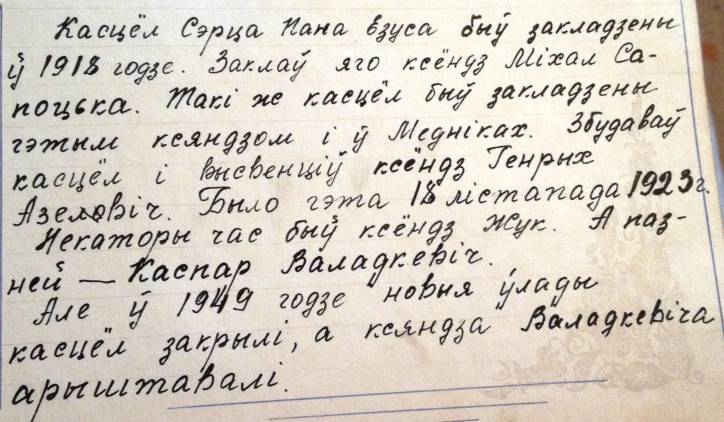 Касцёл Сэрца Пана Езуса быў закладзены
ў 1918 годзе. Заклаў яго ксёндз Міхал Са-
поцька. Такі ж касцёл быў закладзены
гэтым ксяндзом і ў Медніках. Збудаваў
касцёл і высвенціў ксёндз Генрых
Азеловіч. Было гэта 18 лістапада 1923 г.
Некаторы час быў ксёндз Жук. А паз-
ней — Каспар Валадкевіч.
Але ў 1949 годзе новыя ўлады
касцёл закрылі, а ксяндза Валадкевіча
арыштавалі.